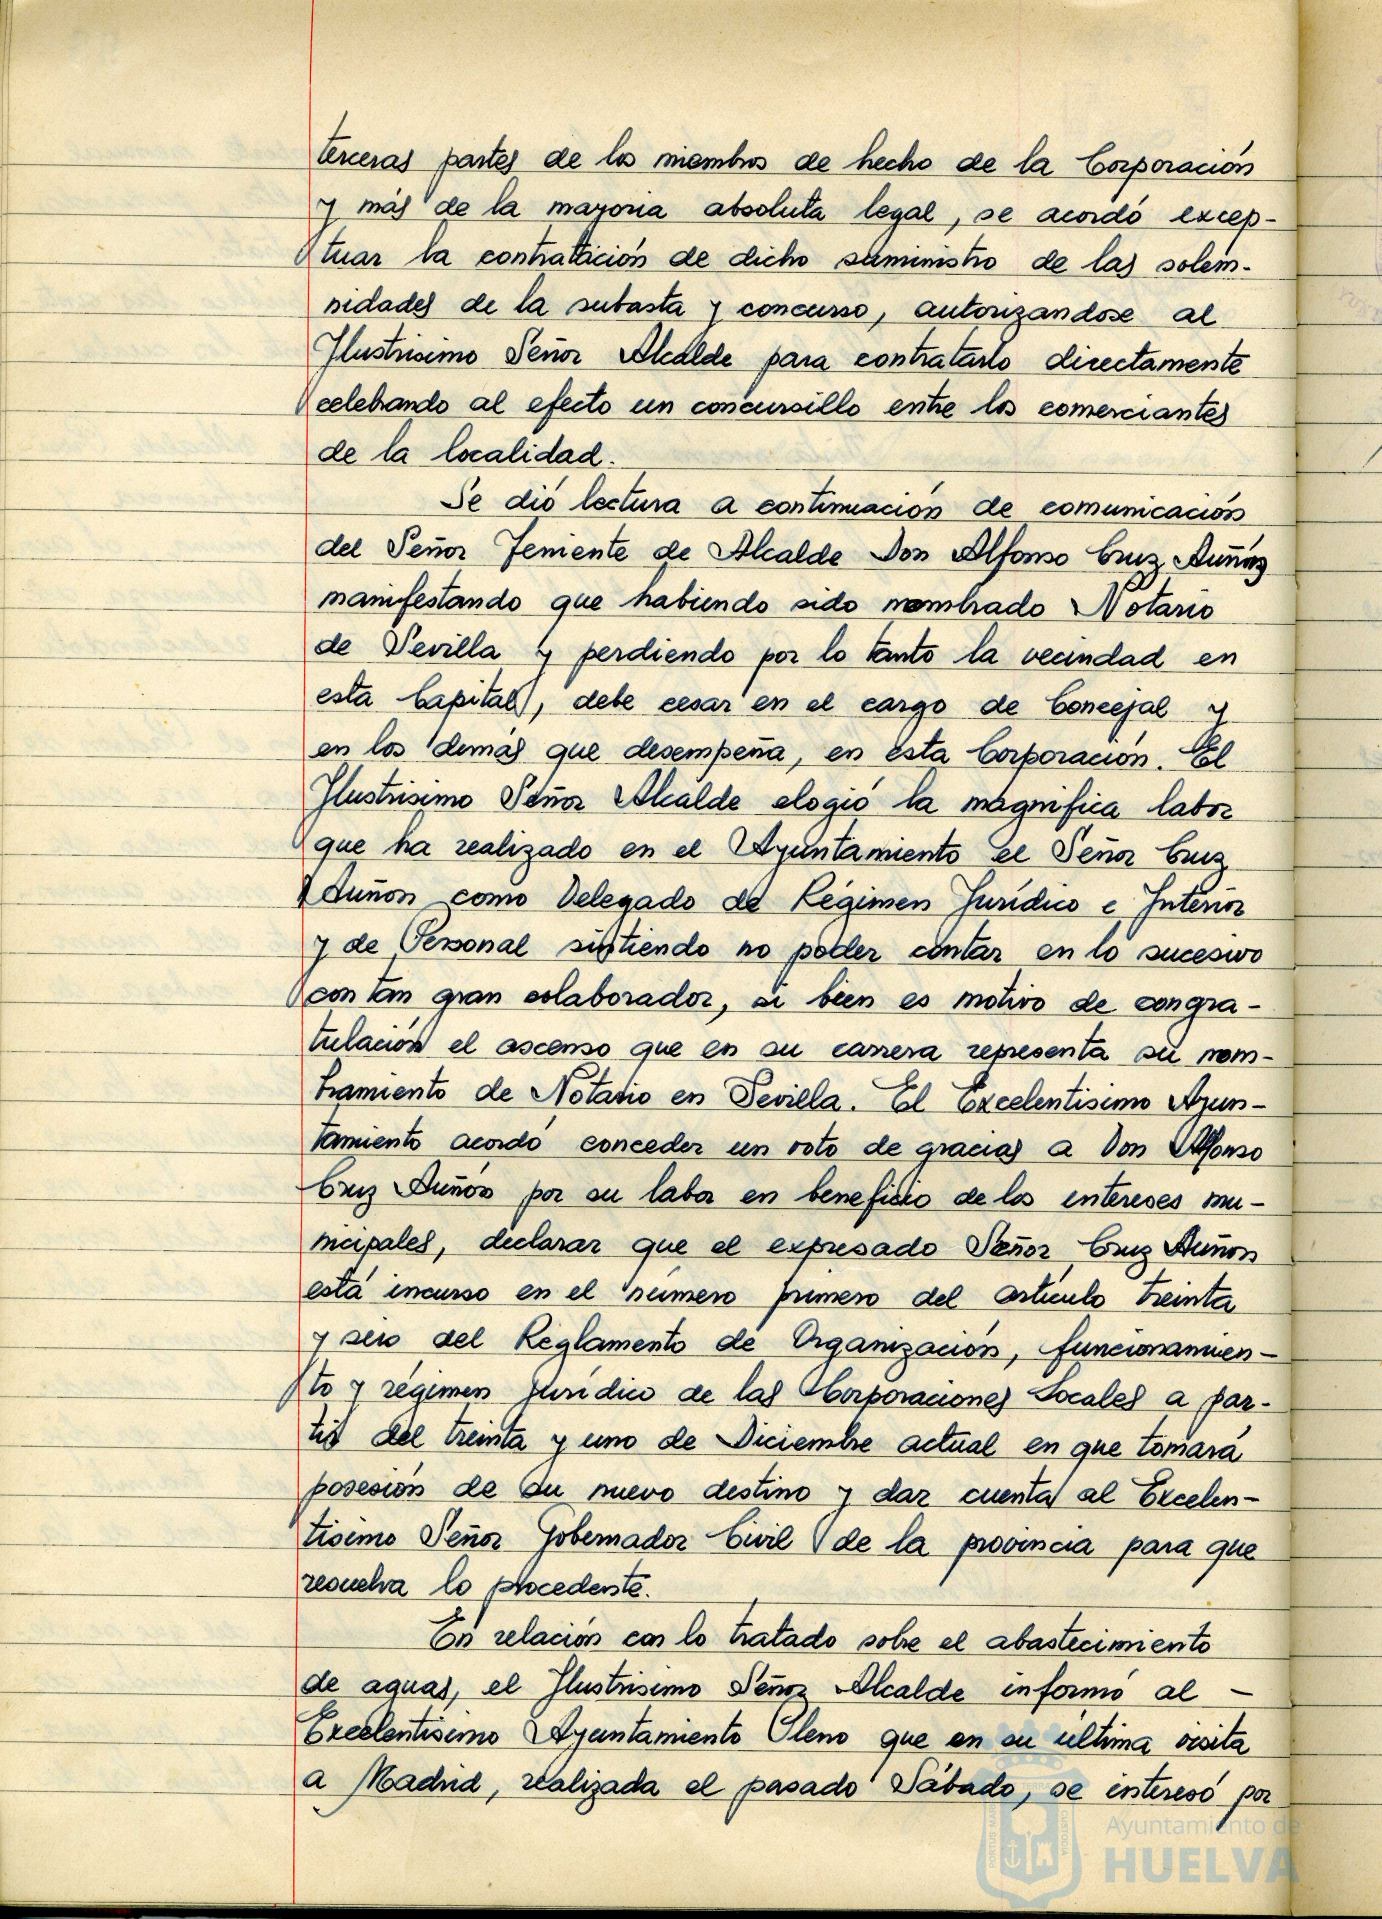 terceras partes de los miembros de hecho de la Corporación
y más de la mayoria absoluta legal, se acordó excep-
tuar la contratación de dicho suministro de las solem-
nidades de la subasta y concurso, autorizandose al
Ilustrisimo Señor Alcalde para contratarlo directamente
celebrando al efecto un concursillo entre los comerciantes
de la localidad.
Se dió lectura a continuación de comunicación
del Señor Teniente de Alcalde Don Alfonso Cruz Auñón
manifestando que habiendo sido nombrado Notario
de Sevilla y perdiendo por lo tanto la vecindad en
esta Capital, debe cesar en el cargo de Concejal y
en los demás que desempeña, en esta Corporación. El
Ilustrisimo Señor Alcalde elogió la magnifica labor
que ha realizado en el Ayuntamiento el Señor Cruz
Auñon como Delegado de Régimen Jurídico e Interior
y de Personal sintiendo no poder contar en lo sucesivo
con tan gran colaborador, si bien es motivo de congra-
tulación el ascenso que en su carrera representa su nom-
bramiento de Notario en Sevilla. El Excelentisimo Ayun-
tamiento acordó conceder un voto de gracias a Don Alfonso
Cruz Auñón por su labor en beneficio de los intereses mu-
nicipales, declarar que el expresado Señor Cruz Auñon
está incurso en el número primero del artículo treinta
y seis del Reglamento de Organización, funcionamien-
to y régimen jurídico de las Corporaciones Locales a par-
tir del treinta y uno de Diciembre actual en que tomará
posesión de su nuevo destino y dar cuenta al Excelen-
tisimo Señor Gobernador Civil de la provincia para que
resuelva lo procedente.
En relación con lo tratado sobre el abastecimiento
de aguas, el Ilustrisimo Señor Alcalde informó al -
Excelentísimo Ayuntamiento Pleno que en su última visita
a Madrid, realizada el pasado Sábado, se interesó por
Ayuntamiento de
HUELVA